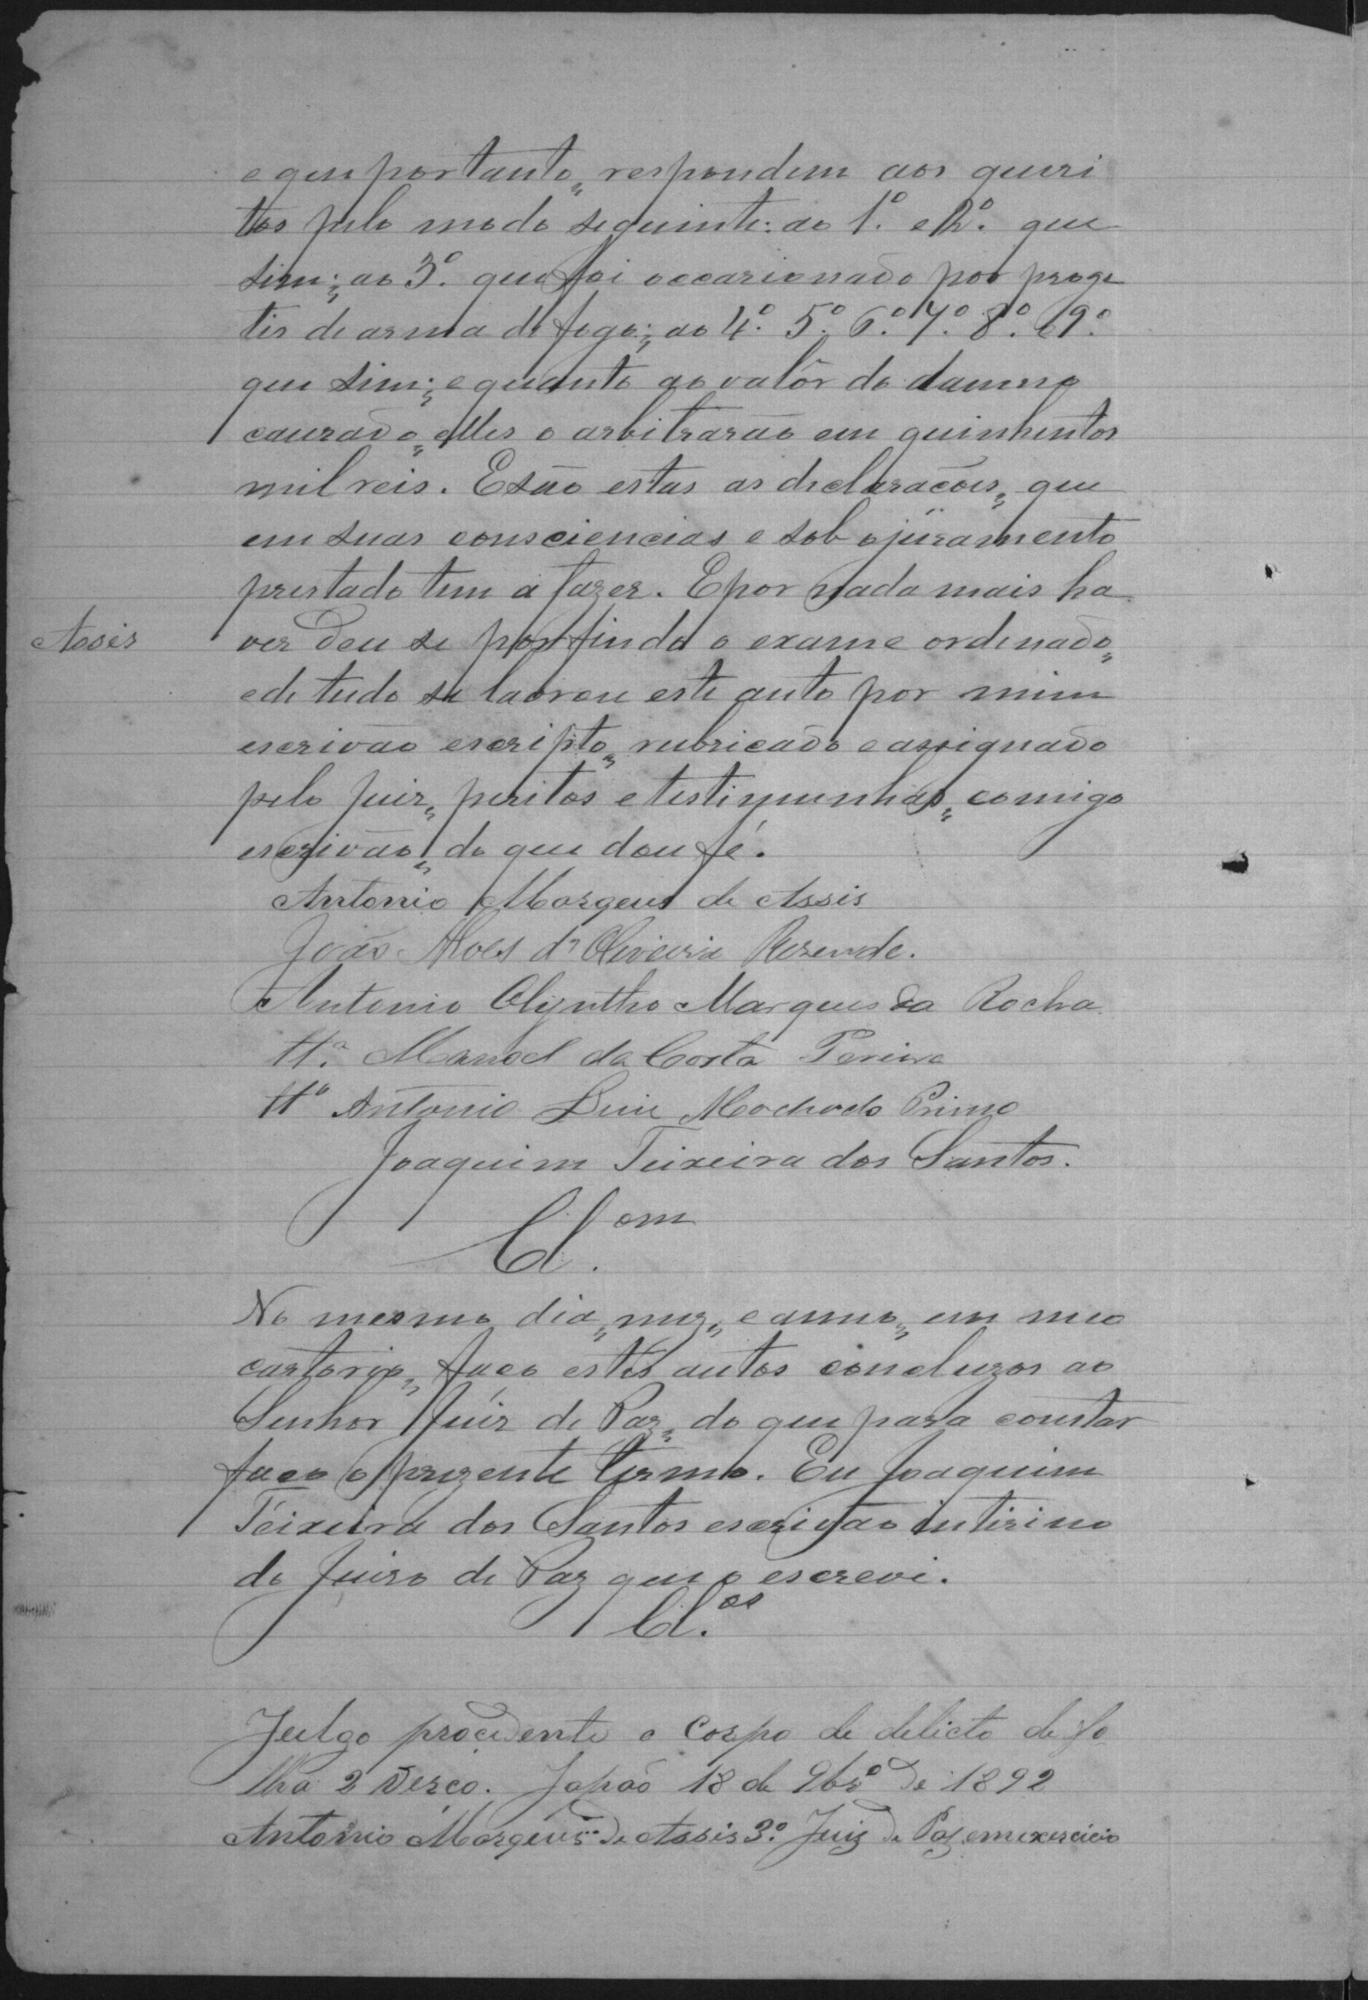 e que portanto, respondem aos queri
tos pelo modo seguinte: ao 1.º e 2.º que
sim; ao 3.º que foi occazionado por proge
tis de arma de fogo; ao 4.º 5.º 6.º 7.º 8.º e 9.º
que sim; e quanto ao valôr do damno
cauzado, elles o arbitrarão em quinhentos
mil reis. E são estas as declarações, que
em suas consciencias e sob o juramento
prestado tem a fazer. E por nada mais ha
Assis
ver deu se por findo o exame ordenado,
e de tudo se lavrou este auto por mim
escrivão escripto, rubricado e assignado
pelo Juiz, peritos e testimunhas, comigo
escrivão, do que dou fé.
Antonio Marques de Assis
João Alves d'Oliveira Rezende.
Antonio Olyntho Marques da Rocha
Tt.ª Manoel da Costa Pereira
Tt.ª Antonio Luiz Machado Primo
Joaquim Teixeira dos Santos.
Cl.om
No mesmo dia, mez, e anno, em meo
cartorio, faço estes autos concluzos ao
Senhor Juiz de Paz, do que para constar
faço o prezente termo. Eu Joaquim
Teixeira dos Santos escrivão intirino
do Juizo de Paz que o escrevi.
Cl.os
Julgo procidente o corpo de delicto de fo
lha 2 verço. Japão 18 de 9br.º de 1892
Antonio Marques de Assis 3.º Juiz de Paz em exercicio